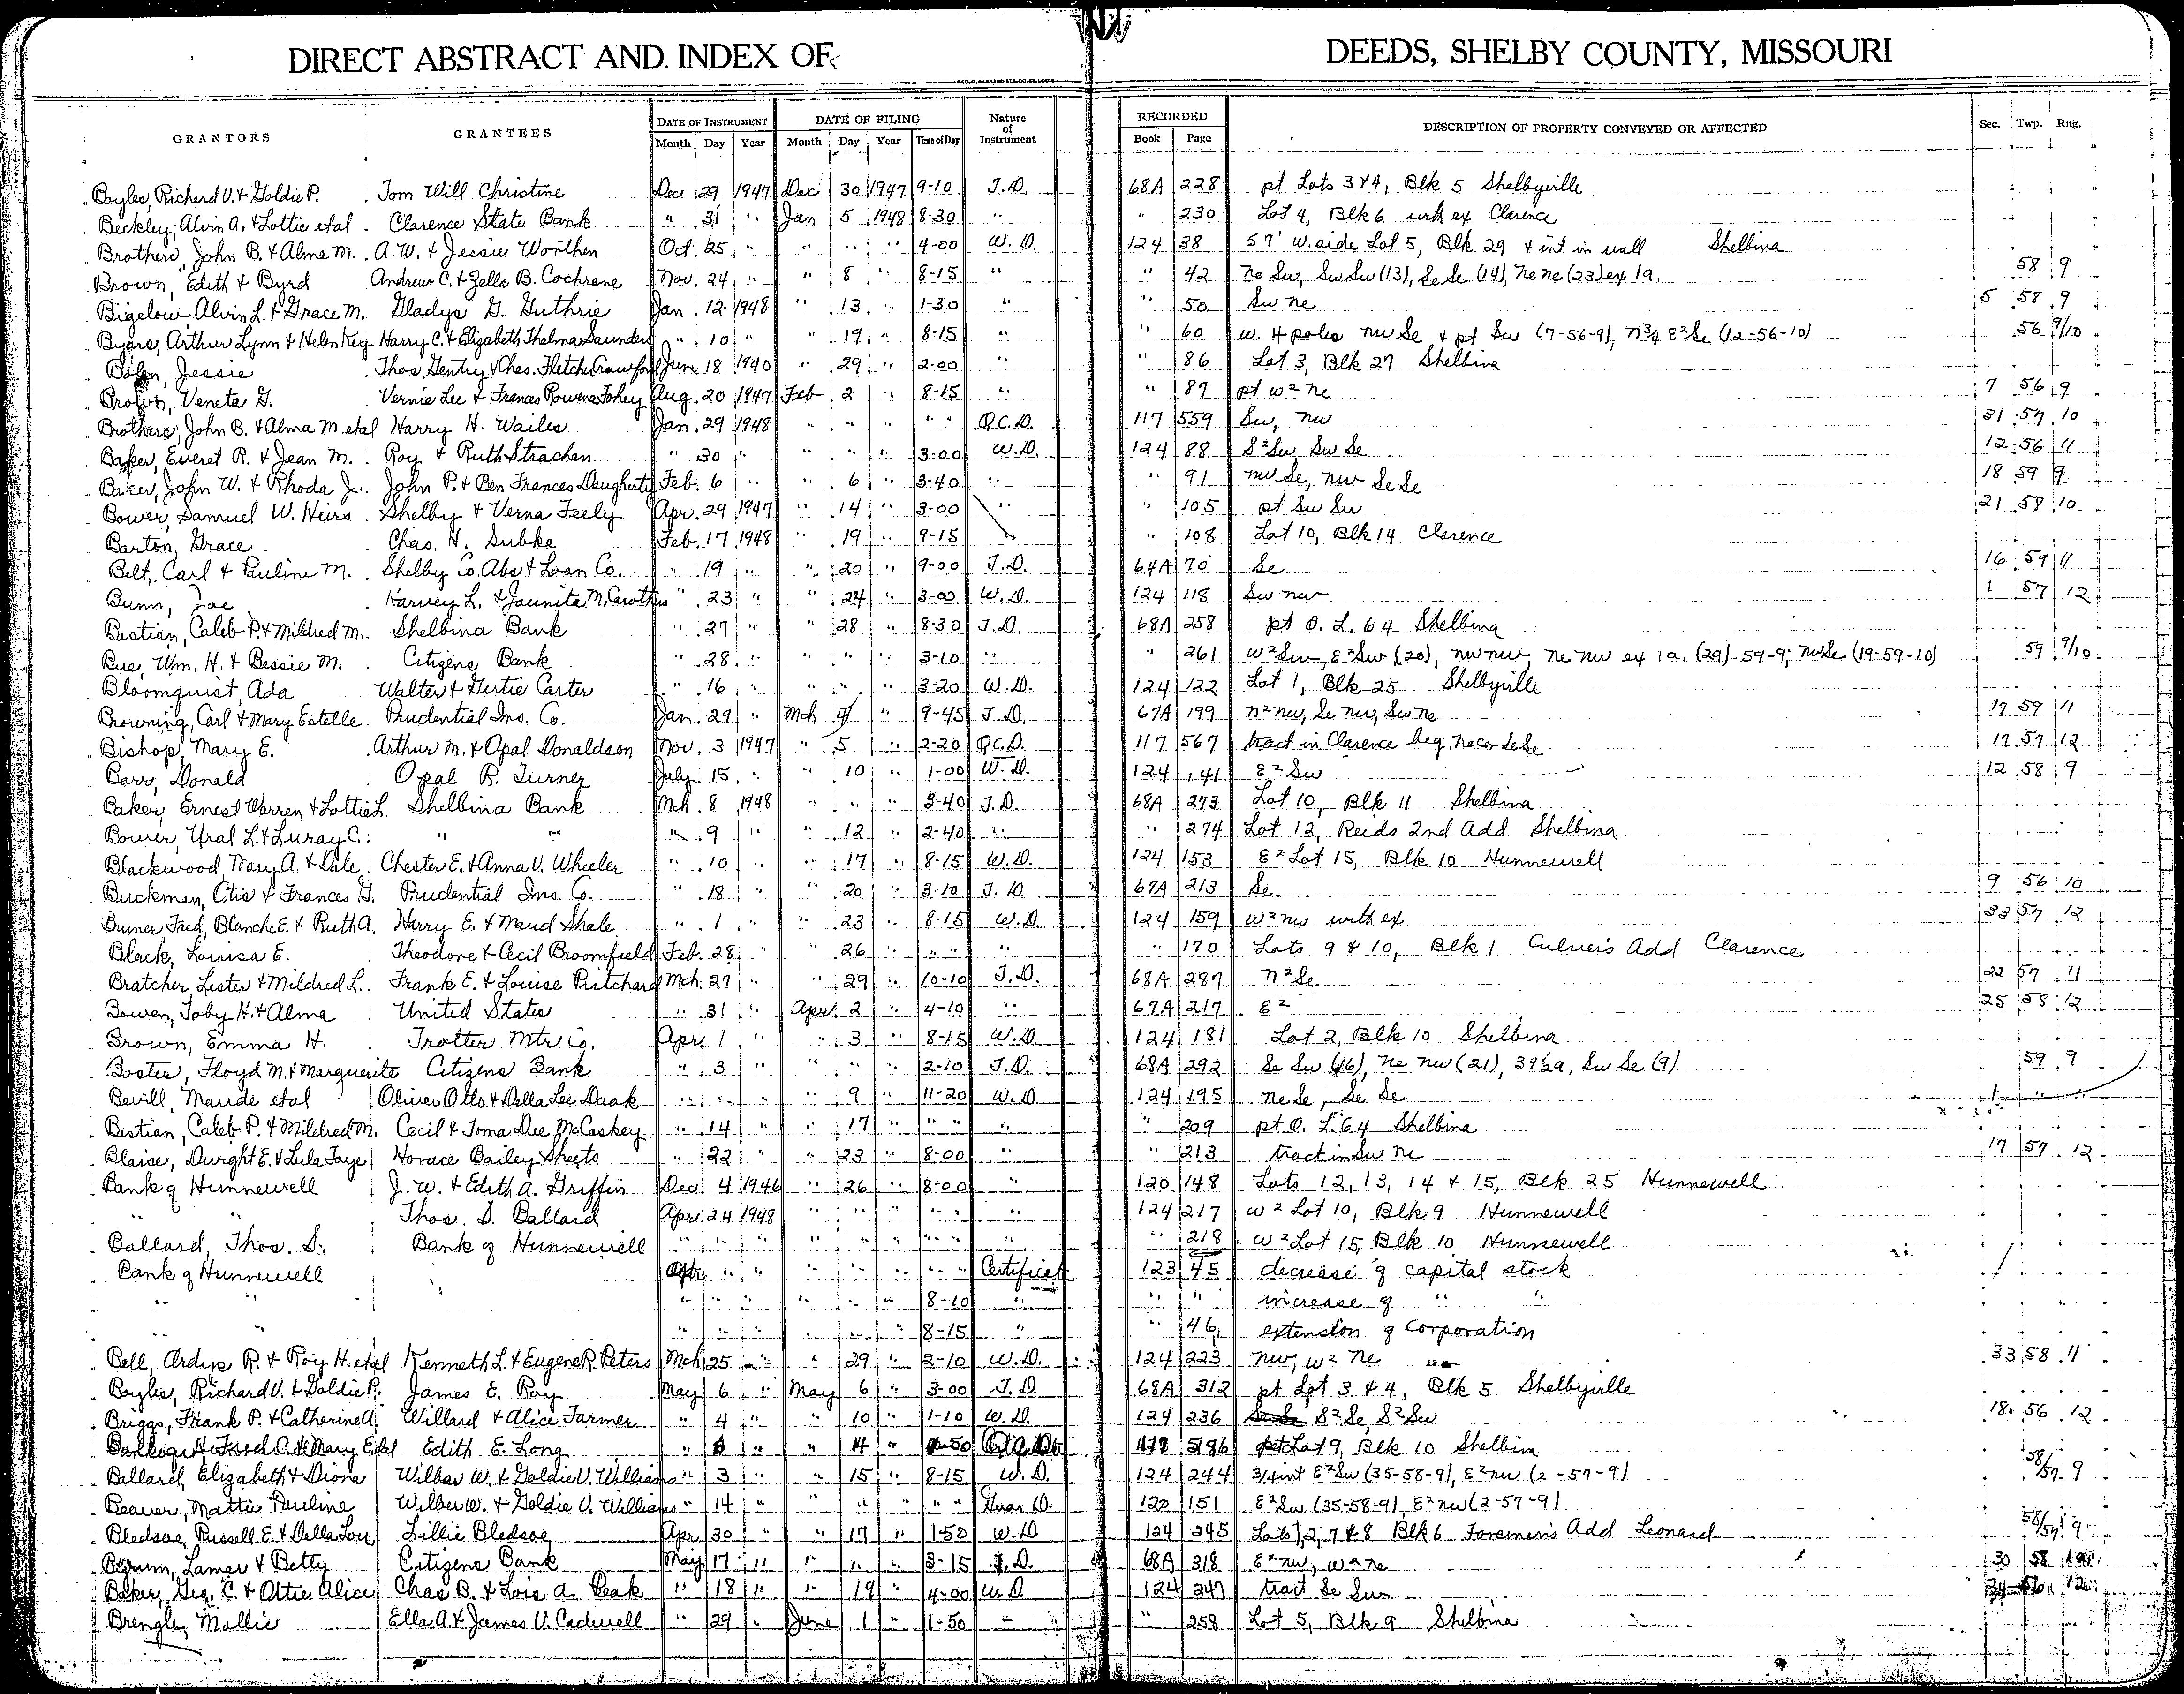 DIRECT ABSTRACT AND INDEX OF DEEDS, SHELBY COUNTY, MISSOURI
GEO. D. BARNARD STA. CO. ST. LOUIS
GRANTORS GRANTEES DATE OF INSTRUMENT DATE OF FILING Nature of Instrument RECORDED DESCRIPTION OF PROPERTY CONVEYED OR AFFECTED Sec. Twp. Rng.
Month Day Year Month Day Year Time of Day Book Page
Bayles, Richard V. & Goldie P. Tom Will Christine Dec 29 1947 Dec 30 1947 9-10 T.D. 68A 228 pt Lots 3 & 4, Blk 5 Shelbyville
Beckley, Alvin A. & Lottie etal Clarence State Bank " 31 " Jan 5 1948 8-30 " " 230 Lot 4, Blk 6 with ex Clarence
Brothers, John B. & Alma M. A.W. & Jessie Worthen Oct 25 " " " " 4-00 W.D. 124 38 57' W. side Lot 5, Blk 29 & int in wall Shelbina
Brown, Edith & Byrd Andrew C. & Zella B. Cochrane Nov 24 " " 8 " 8-15 " " 42 Ne Sw, Sw Sw (13), Se Se (14), Ne Ne (23) ex 1a. 58 9
Bigelow, Alvin L. & Grace M. Gladys G. Guthrie Jan 12 1948 " 13 " 1-30 " " 50 Sw Ne 5 58 9
Byars, Arthur Lynn & Helen Key Harry C. & Elizabeth Thelma Saunders " 10 " " 19 " 8-15 " " 60 W. 4 poles NW Se & pt Sw (7-56-9), N3/4 E2 Se (12-56-10) 56 9/10
Jessie Thos. Gentry & Chas. Fletcher Crawford June 18 1940 " 29 " 2-00 " " 86 Lot 3, Blk 27 Shelbina
Brown, Veneta G. Vernie Lee & Frances Rowena Fohey Aug 20 1947 Feb 2 " 8-15 " " 87 pt W2 Ne 7 56 9
Brothers, John B. & Alma M. etal Harry H. Wailes Jan 29 1948 " " " " " Q.C.D. 117 559 Sw, NW 31 57 10
Baker, Everet R. & Jean M. Roy & Ruth Strachan " 30 " " " " 3-00 W.D. 124 88 S2 Sw Sw Se 12 56 11
Baker, John W. & Rhoda J. John P. & Ben Frances Daugherty Feb 6 " " 6 " 3-40 " " 91 NW Se, NW Se Se 18 59 9
Bower, Samuel W. Heirs Shelby & Verna Feely Apr. 29 1947 " 14 " 3-00 " " 105 pt Sw Sw 21 58 10
Barton, Grace Chas. H. Subke Feb. 17 1948 " 19 " 9-15 " " 108 Lot 10, Blk 14 Clarence
Belt, Carl & Pauline M. Shelby Co. Abst & Loan Co. " 19 " " 20 " 9-00 T.D. 64A 70 Se 16 59 11
Bunn, Joe Harvey L. & Jaunita M. Carothers " 23 " " 24 " 3-00 W.D. 124 118 Sw NW 1 57 12
Bastian, Caleb P. & Mildred M. Shelbina Bank " 27 " " 28 " 8-30 T.D. 68A 258 pt O. L. 64 Shelbina
Bue, Wm. H. & Bessie M. Citizens Bank " 28 " " " " 3-10 " " 261 W2 Sw, E2 Sw (20), NW NW, Ne NW ex 1a. (29)-59-9; NW Se (19-59-10) 59 9/10
Bloomquist, Ada Walter & Gertie Carter " 16 " " " " 3-20 W.D. 124 122 Lot 1, Blk 25 Shelbyville
Browning, Carl & Mary Estelle Prudential Ins. Co. Jan 29 " Mch 4 " 9-45 T.D. 67A 199 N2 NW, Se NW, Sw Ne 17 59 11
Bishop, Mary E. Arthur M. & Opal Donaldson Nov 3 1947 " 5 " 2-20 Q.C.D. 117 567 tract in Clarence beg. Ne cor Se Se 17 57 12
Barr, Donald Opal R. Turner July 15 " " 10 " 1-00 W.D. 124 141 E2 Sw 12 58 9
Baker, Ernest Warren & Lottie L. Shelbina Bank Mch 8 1948 " " " 3-40 T.D. 68A 273 Lot 10, Blk 11 Shelbina
Bower, Ural L. & Luray C. " " " 9 " " 12 " 2-40 " " 274 Lot 12, Reids 2nd Add Shelbina
Blackwood, Mary A. & Dale Chester E. & Anna V. Wheeler " 10 " " 17 " 8-15 W.D. 124 153 E2 Lot 15, Blk 10 Hunnewell
Buckman, Otis & Frances G. Prudential Ins. Co. " 18 " " 20 " 3-10 T.D. 67A 213 Se 9 56 10
Bruner Fred, Blanche E. & Ruth A. Harry E. & Maud Shale " 1 " " 23 " 8-15 W.D. 124 159 W2 NW with ex 33 57 12
Black, Louisa E. Theodore & Cecil Broomfield Feb 28 " " 26 " " " " " 170 Lots 9 & 10, Blk 1 Culver's Add Clarence
Bratcher, Lester & Mildred L. Frank E. & Louise Pritchard Mch 27 " " 29 " 10-10 T.D. 68A 287 N2 Se 22 57 11
Bowen, Toby H. & Alma United States " 31 " Apr 2 " 4-10 " 67A 217 E2 25 58 12
Brown, Emma H. Trotter Mtr Co. Apr 1 " " 3 " 8-15 W.D. 124 181 Lot 2, Blk 10 Shelbina
Floyd M. & Marguerite Citizens Bank " 3 " " " " 2-10 T.D. 68A 292 Se Sw (16), Ne NW (21), 39½a, Sw Se (9) 59 9
Bevill, Maude etal Oliver Otto & Della Lee Daak " " " " 9 " 11-20 W.D. 124 195 Ne Se, Se Se 1 " "
Bastian, Caleb P. & Mildred M. Cecil & Toma Dee McCaskey " 14 " " 17 " " " " " 209 pt. O. L. 64 Shelbina
Blaise, Dwight E. & Lula Faye Horace Bailey Sheets " 22 " " 23 " 8-00 " " 213 tract in Sw Ne 17 57 12
Bank of Hunnewell J. W. & Edith A. Griffin Dec 4 1946 " 26 " 8-00 " 120 148 Lots 12, 13, 14 & 15, Blk 25 Hunnewell
" " Thos. S. Ballard Apr 24 1948 " " " " " " 124 217 W2 Lot 10, Blk 9 Hunnewell
Ballard, Thos. S. Bank of Hunnewell " " " " " " " " " " 218 W2 Lot 15, Blk 10 Hunnewell
Bank of Hunnewell Apr " " " " " " " Certificate 123 45 decrease of capital stock
" " " " " " " " 8-10 " " " increase of " "
" " " " " " " " 8-15 " " 46 extension of Corporation
Bell, Ardys R. & Roy H. etal Kenneth L. & Eugene R. Peters Mch 25 " " 29 " 2-10 W.D. 124 223 NW, W2 Ne 33 58 11
Baylis, Richard V. & Goldie P. James E. Roy May 6 " May 6 " 3-00 T.D. 68A 312 pt Lot 3 & 4, Blk 5 Shelbyville
Briggs, Frank P. & Catherine A. Willard & Alice Farmer " 4 " " 10 " 1-10 W.D. 124 236 S2 Se, S2 Sw 18 56 12
Mary Etal Edith E. Long " " " " Lot 9, Blk 10 Shelbina
Ballard, Elizabeth & Diona Wilber W. & Goldie V. Williams " 3 " " 15 " 8-15 W.D. 124 244 3/4 int E2 Sw (35-58-9), E2 NW (2-57-9) 58/57 9
Beaver, Mattie Pauline Wilber W. & Goldie V. Williams " 14 " " " " " " Guar D. 120 151 E2 Sw (35-58-9), E2 NW (2-57-9) 58/57 9
Bledsoe, Russell E. & Della Lou Lillie Bledsoe Apr 30 " " 17 " 1-50 W.D 124 245 Lots 1, 2, 7 & 8 Blk 6 Foreman's Add Leonard
Lamar & Betty Citizens Bank May 17 " " " " 3-15 T.D. 68A 318 E2 NW, W2 Ne 30 58
Baker, Geo. C. & Ottie Alice Chas B. & Lois A. Peak " 18 " " 19 " 4-00 W.D. 124 247 tract Se Sw 12
Brengle, Mollie Ella A. & James V. Cadwell " 29 " June 1 " 1-50 " " 258 Lot 5, Blk 9 Shelbina